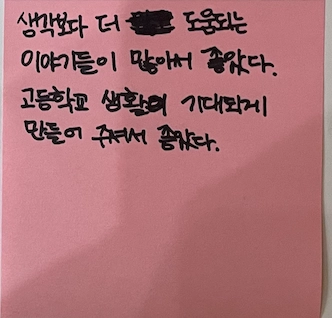 생각보다 더 도움되는
이야기들이 많아서 좋았다.
고등학교 생활이 기대되게
만들어 주셔서 좋았다.